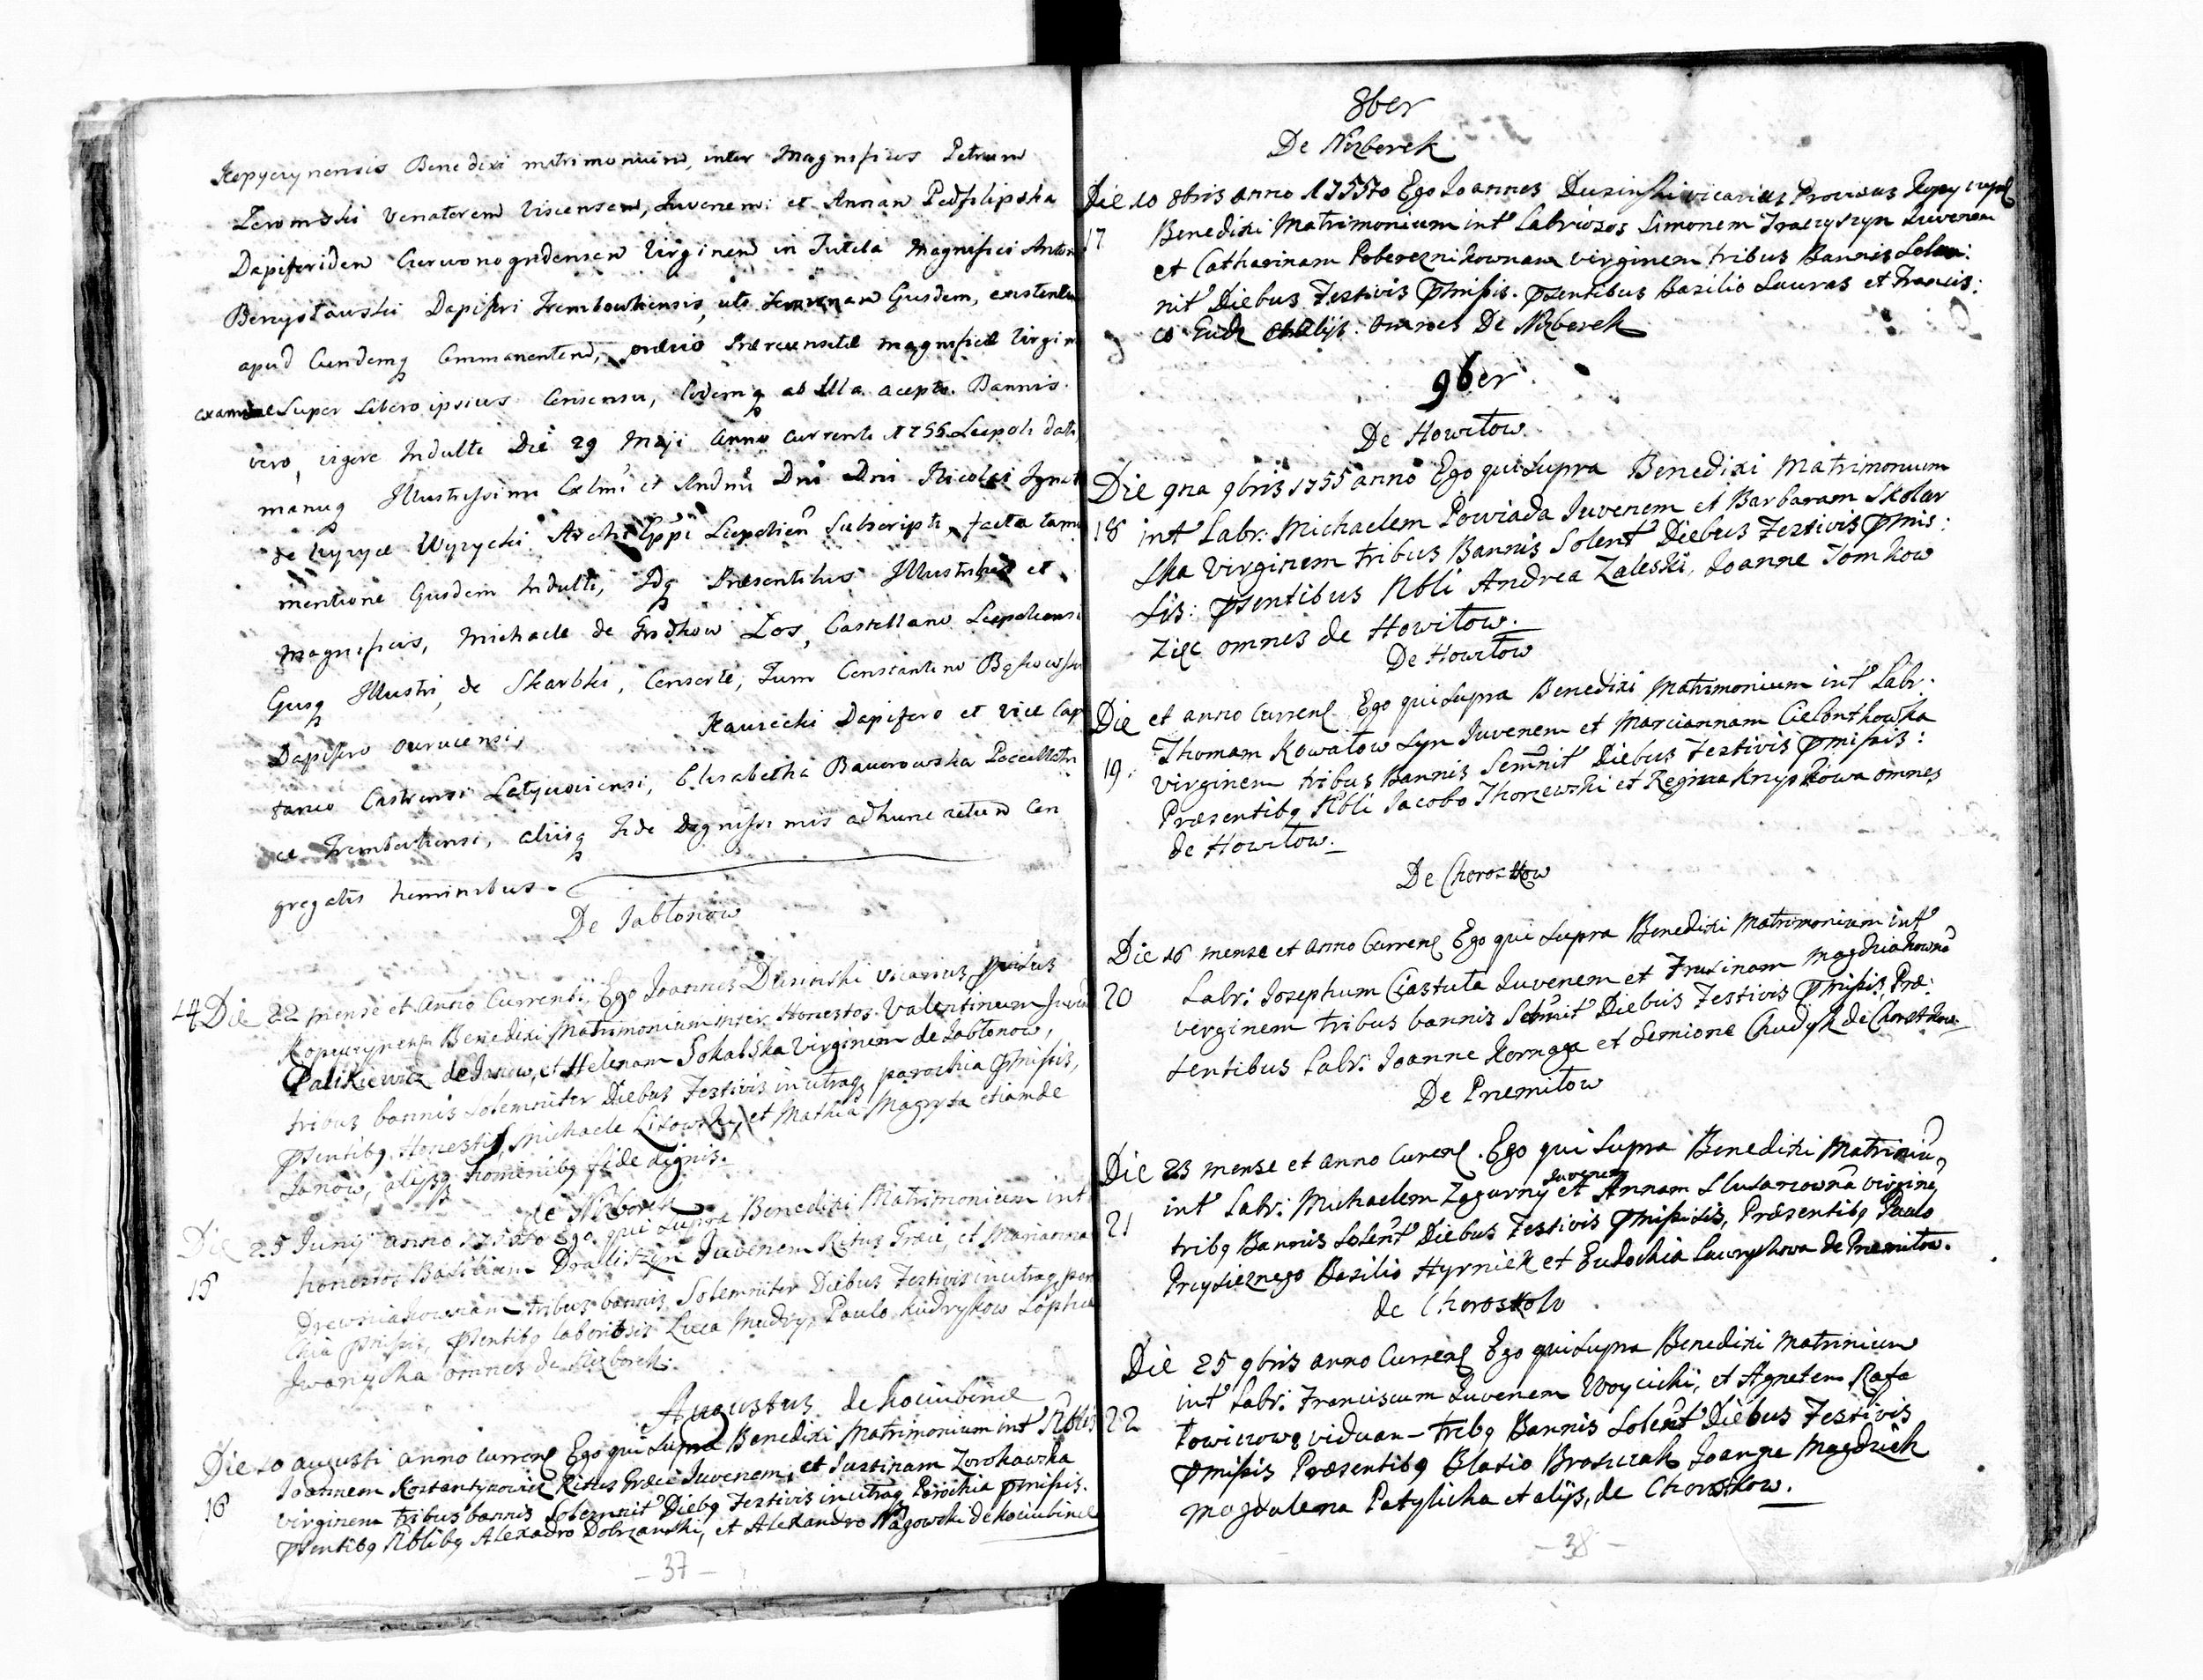 Kopyczynensis Benedixi matrimonium, inter Magnificos Petrum
Zeromski Venatorem Viscensem, Juvenem: et Annam Podfilipska
Dapiferiden Czerwonogrdensem Virginem in Tutela Magnifici Anton
Benyslawski Dapiferi Trembowliensis, uti Gusdem, existentem
apud Eundemq Commanentem, prævio Prærecensitæ magnificæ Virgin
examine Super Libero ipsius Consensu, Eodemq ab Illa acepto. Bannis
vero, vigore Indulti Die 29 Maji Anno currenti 1755 Leopoli dati
manuq Illustrissimi Exlmi et Rndmi Dni Dni Nicolai Ignati
de Wyzyce Wyzycki Archi Eppi Leopolien Subscripti, facta tamen
mentione Gusdem Indulti, Idq Præsentibus Illustribus et
Magnificis, Michaele de Grodkow Łos, Castellano Leopoliensi
Gusq Illustri, de Skarbki, Consorte, Tum Constantino Bąkowski
Dapifero Ovrucensi, Kawiecki Dapifero et Vice Cap
taneo Castrensi Latyczoviensi, Elisabetha Baworowska Poccillatri
ce Trembovliensi, aliisq Fide Dignissimis adhunc actum Con
gregatis hominibus.
De Jabłonow
14 Die 22 mense et anno Currenti, Ego Joannes Dusinski vicarius
Kopeczynens Benedixi Matrimonium inter Honestos Valentinum Juven
Palikiewicz de Janow, et Helenam Sokalska Virginem de Jabłonow,
tribus bannis Solemniter Diebus Festivis in utraq parochia pmissis,
psentibq Honestis, Michaele Lisowski, et Mathia Magryta etiam de
Janow, alijsq hominibq fide dignis.
de Nizborek
Die 25 Junij anno 1755to Ego, qui supra Benedixi Matrimonium int
15 honestos Basilium Dralliszyn Juvenem Ritus Græci, et Marianna
Drewniakownam tribus bannis Solemniter Diebus Festivis in utraq paro
chia pmissis, psentibq laboriosis Luca Mudry, Paulo Kudrykow Sophia
Iwanycha omnes de Nizborek.
Augustus de Kociubince
Die 10 augusti anno curren Ego qui supra Benedixi Matrimonium int Nbles
16 Joannem Kostantynowicz Ritus Græci Juvenem, et Justinam Zorokowska
virginem tribus bannis Solemnit Diebq Festivis in utraq Parochia pmissis.
psentibq Nblibq Alexadro Dobrzanski, et Alexandro Nagowski de Kociubince
- 37 -
8ber
De Nizborek
Die 10 8bris anno 1755to Ego Joannes Dusinski vicarius Provisus
17 Benedixi Matrimonium int Labriosos Simonem Juvenem
et Catharinam Pobereznikownam virginem tribus Bannis Solem:
nit Diebus Festivis pmissis. psentibus Basilio Lauras et Francis:
co et alijs. omnes De Nizborek
9ber
De Howiłow
Die 9na 9bris 1755 anno Ego qui Supra Benedixi Matrimonium
18 int Labr: Michaelem Powiada Juvenem et Barbaram Skolar
ska virginem tribus Bannis Solent Diebus Festivis pmis:
sis: psentibus Nbli Andrea Zaleski, Joanne Tomkow
Zięc omnes de Howiłow.
De Howiłow
Die et anno Curren Ego qui supra Benedixi Matrimonium int Labr.
19. Thomam Kowałow Syn Juvenem et Mariannam Cielontkowska
virginem tribus Bannis Semnit Diebus Festivis pmissis:
Præsentibq Nbli Jacobo Thorzewski et Regina Knyszkowa omnes
de Howiłow.
De Chorostkow
Die 16 mense et anno Curren Ego qui Supra Benedixi Matrimonium int
20 Labr: Josephum Ciastuła Juvenem et Frusinam Magdziakowna
virginem tribus bannis Diebus Festivis pmissis, Præ:
sentibus Labr: Joanne Kornaga et Semione Chudyk de Chorostkow
De Premiłow
Die 23 mense et anno Curren. Ego qui Supra Benedixi Matriniu
int Labr: Michaelem Zagurny Juvenem et Annam Slusarcowna virgine
21 tribq Bannis Solent Diebus Festivis pmissis, Præsentibq Paulo
Przysieznego Basilio Hyrniek et Eudochia Lawrykowa de Premiłow.
de Chorostkow
Die 25 9bris anno Curren Ego qui Supra Benedixi Matrinium
int Labr: Franciscum Juvenem Woycicki, et Agnetem Rafa
22 łowiczowę viduam - tribq Bannis Solent Diebus Festivis
pmissis Præsentibq Blasio Broszczak Joanne Magdziek
Magdalena Patylicha et alijs, de Chorostkow.
- 38 -